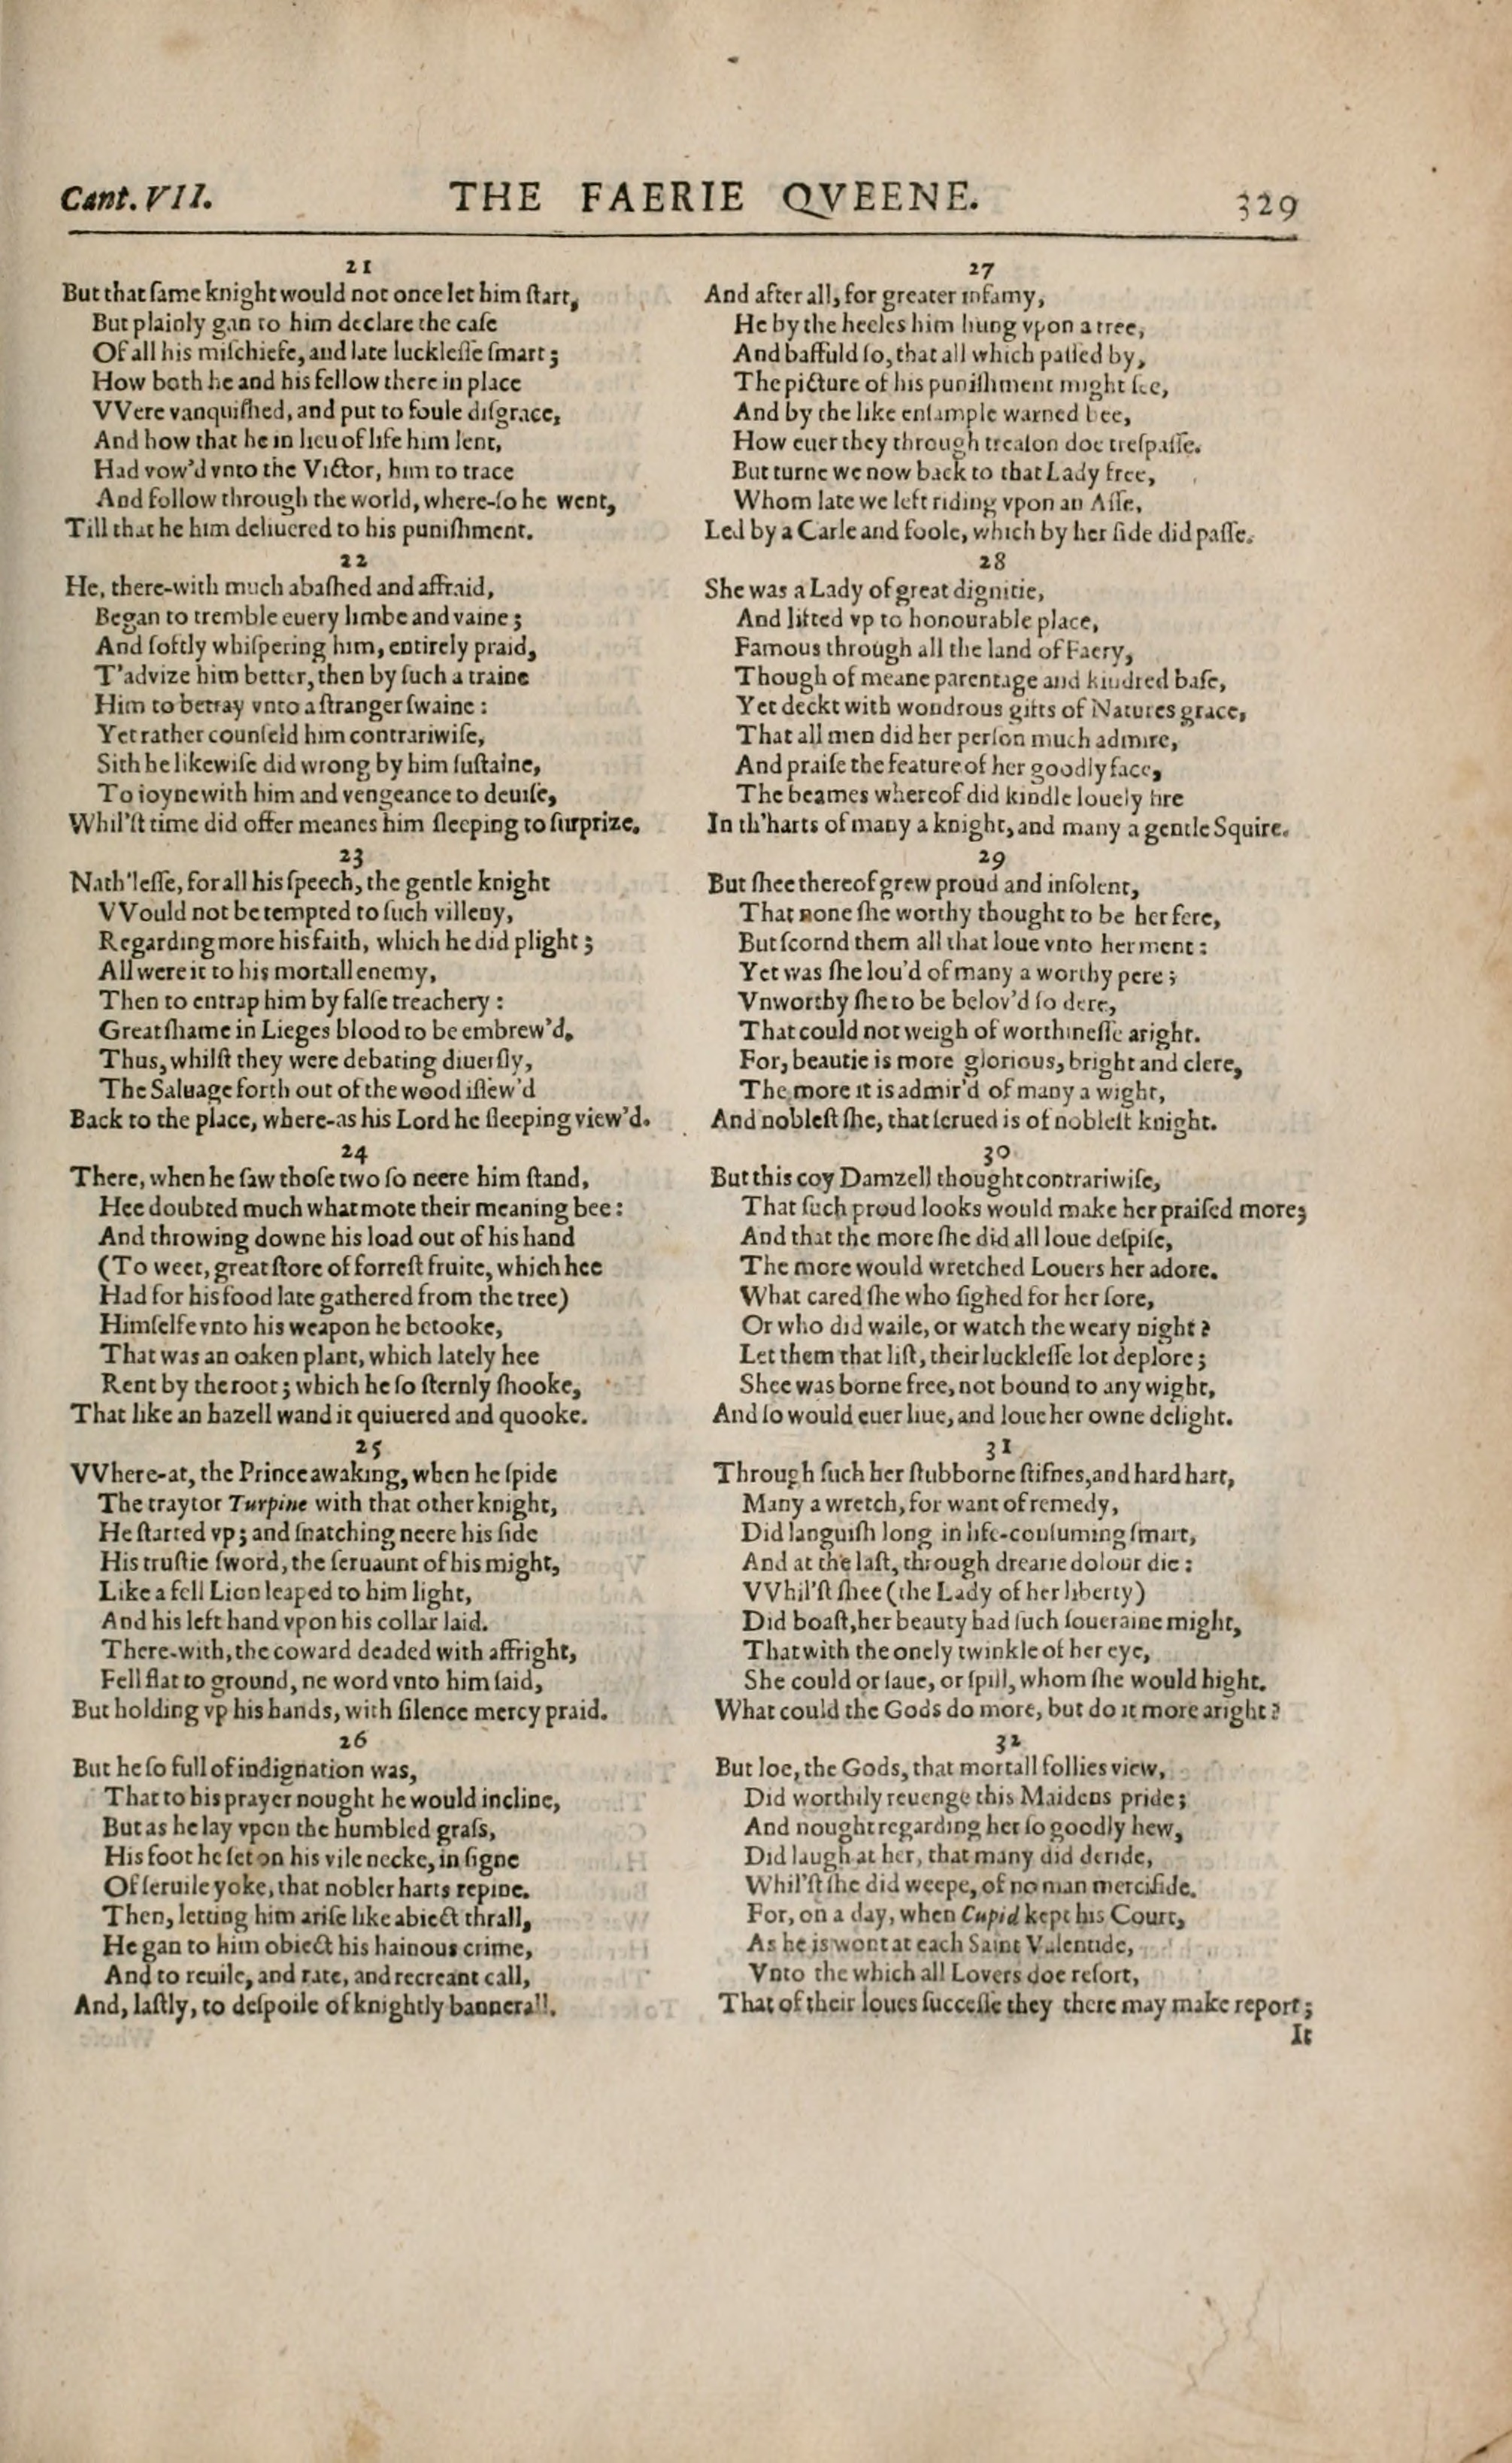 Cant. VII.
THE FAERIE QVEENE.
329
21
But that ſame knight would not once let him ſtart,
But plainly gan to him declare the caſe
Of all his miſchiefe, and late luckleſſe ſmart;
How both he and his fellow there in place
VVere vanquiſhed, and put to foule diſgrace,
And how that he in lieu of life him lent,
Had vow'd vnto the Victor, him to trace
And follow through the world, where-ſo he went,
Till that he him deliuered to his puniſhment.
22
He, there-with much abaſhed and affraid,
Began to tremble euery limbe and vaine;
And ſoftly whiſpering him, entirely praid,
T'advize him better, then by ſuch a traine
Him to betray vnto a ſtranger ſwaine:
Yet rather counſeld him contrariwiſe,
Sith he likewiſe did wrong by him ſuſtaine,
To ioyne with him and vengeance to deuiſe,
Whil'ſt time did offer meanes him ſleeping to ſurprize.
23
Nath'leſſe, for all his ſpeech, the gentle knight
VVould not be tempted to ſuch villeny,
Regarding more his faith, which he did plight;
All were it to his mortall enemy,
Then to entrap him by falſe treachery:
Great ſhame in Lieges blood to be embrew'd.
Thus, whilſt they were debating diuerſly,
The Saluage forth out of the wood iſſew'd
Back to the place, where-as his Lord he ſleeping view'd.
24
There, when he ſaw thoſe two ſo neere him ſtand,
Hee doubted much what mote their meaning bee:
And throwing downe his load out of his hand
(To weet, great ſtore of forreſt fruite, which hee
Had for his food late gathered from the tree)
Himſelfe vnto his weapon he betooke,
That was an oaken plant, which lately hee
Rent by the root; which he ſo ſternly ſhooke,
That like an hazell wand it quiuered and quooke.
25
VVhere-at, the Prince awaking, when he ſpide
The traytor Turpine with that other knight,
He ſtarted vp; and ſnatching neere his ſide
His truſtie ſword, the ſeruaunt of his might,
Like a fell Lion leaped to him light,
And his left hand vpon his collar laid.
There-with, the coward deaded with affright,
Fell flat to ground, ne word vnto him ſaid,
But holding vp his hands, with ſilence mercy praid.
26
But he ſo full of indignation was,
That to his prayer nought he would incline,
But as he lay vpon the humbled graſs,
His foot he ſet on his vile necke, in ſigne
Of ſeruile yoke, that nobler harts repine.
Then, letting him ariſe like abiect thrall,
He gan to him obiect his hainous crime,
And to reuile, and rate, and recreant call,
And, laſtly, to deſpoile of knightly bannerall.
27
And after all, for greater infamy,
He by the heeles him hung vpon a tree,
And baffuld ſo, that all which paſſed by,
The picture of his puniſhment might ſee,
And by the like enſample warned bee,
How euer they through treaſon doe treſpaſſe.
But turne we now back to that Lady free,
Whom late we left riding vpon an Aſſe,
Led by a Carle and foole, which by her ſide did paſſe.
28
She was a Lady of great dignitie,
And lifted vp to honourable place,
Famous through all the land of Faery,
Though of meane parentage and kindred baſe,
Yet deckt with wondrous gifts of Natures grace,
That all men did her perſon much admire,
And praiſe the feature of her goodly face,
The beames whereof did kindle louely fire
In th'harts of many a knight, and many a gentle Squire.
29
But ſhee thereof grew proud and inſolent,
That none ſhe worthy thought to be her fere,
But ſcornd them all that loue vnto her ment:
Yet was ſhe lou'd of many a worthy pere;
Vnworthy ſhe to be belov'd ſo dere,
That could not weigh of worthineſſe aright.
For, beautie is more glorious, bright and clere,
The more it is admir'd of many a wight,
And nobleſt ſhe, that ſerued is of nobleſt knight.
30
But this coy Damzell thought contrariwiſe,
That ſuch proud looks would make her praiſed more;
And that the more ſhe did all loue deſpiſe,
The more would wretched Louers her adore.
What cared ſhe who ſighed for her ſore,
Or who did waile, or watch the weary night?
Let them that liſt, their luckleſſe lot deplore;
Shee was borne free, not bound to any wight,
And ſo would euer liue, and loue her owne delight.
31
Through ſuch her ſtubborne ſtifnes, and hard hart,
Many a wretch, for want of remedy,
Did languiſh long in life-conſuming ſmart,
And at the laſt, through drearie dolour die:
VVhil'ſt ſhee (the Lady of her liberty)
Did boaſt, her beauty had ſuch ſoueraine might,
That with the onely twinkle of her eye,
She could or ſaue, or ſpill, whom ſhe would hight.
What could the Gods do more, but do it more aright?
32
But loe, the Gods, that mortall follies view,
Did worthily reuenge this Maidens pride;
And nought regarding her ſo goodly hew,
Did laugh at her, that many did deride,
Whil'ſt ſhe did weepe, of no man mercifide.
For, on a day, when Cupid kept his Court,
As he is wont at each Saint Valentide,
Vnto the which all Lovers doe reſort,
That of their loues ſucceſſe they there may make report;
It